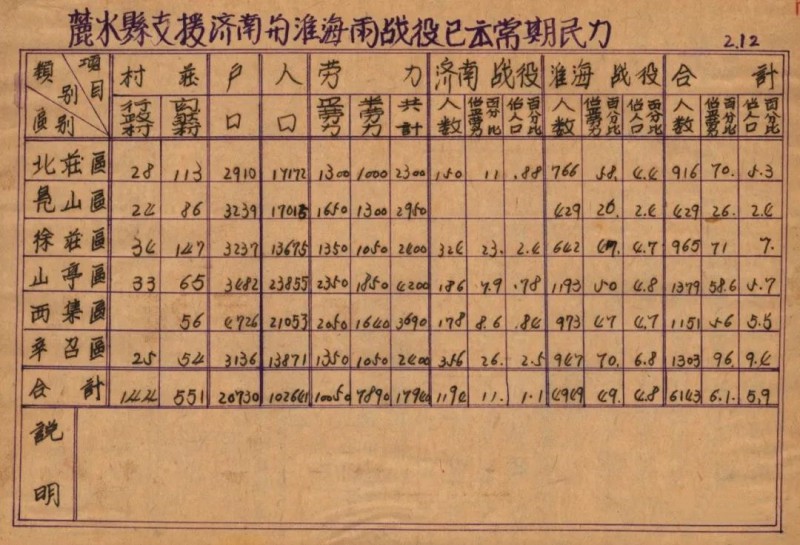 麓水縣支援济南和淮海兩战役已去常期民力
2.12
項目 類别 區别 村莊 户口 人口 劳力 济南战役 淮海战役 合計
行政村 自然村 整劳力 半劳力 共計 人数 佔整劳力百分比 佔人口百分比 人数 佔整劳力百分比 佔人口百分比 人数 佔整劳力百分比 佔人口百分比
北莊區 28 113 2910 17172 1300 1000 2300 150 11 .88 766 58. 4.4 916 70. 5.3
凫山區 24 86 3239 17015 1650 1300 2950 429 26. 2.4 429 26. 2.4
徐莊區 34 147 3237 13675 1350 1050 2400 324 23. 2.4 642 47. 4.7 965 71 7.
山亭區 33 65 3482 23855 2350 1850 4200 186 7.9 .78 1193 50 4.8 1379 58.6 5.7
西集區 56 4726 21053 2050 1640 3690 178 8.6 .84 973 47 4.7 1151 56 5.5
辛召區 25 54 3136 13871 1350 1050 2400 356 26. 2.5 947 70. 6.8 1303 96. 9.4
合計 144 551 20730 102641 10050 7890 17940 1194 11. 1.1 4949 49. 4.8 6143 6.1. 5.9
説明